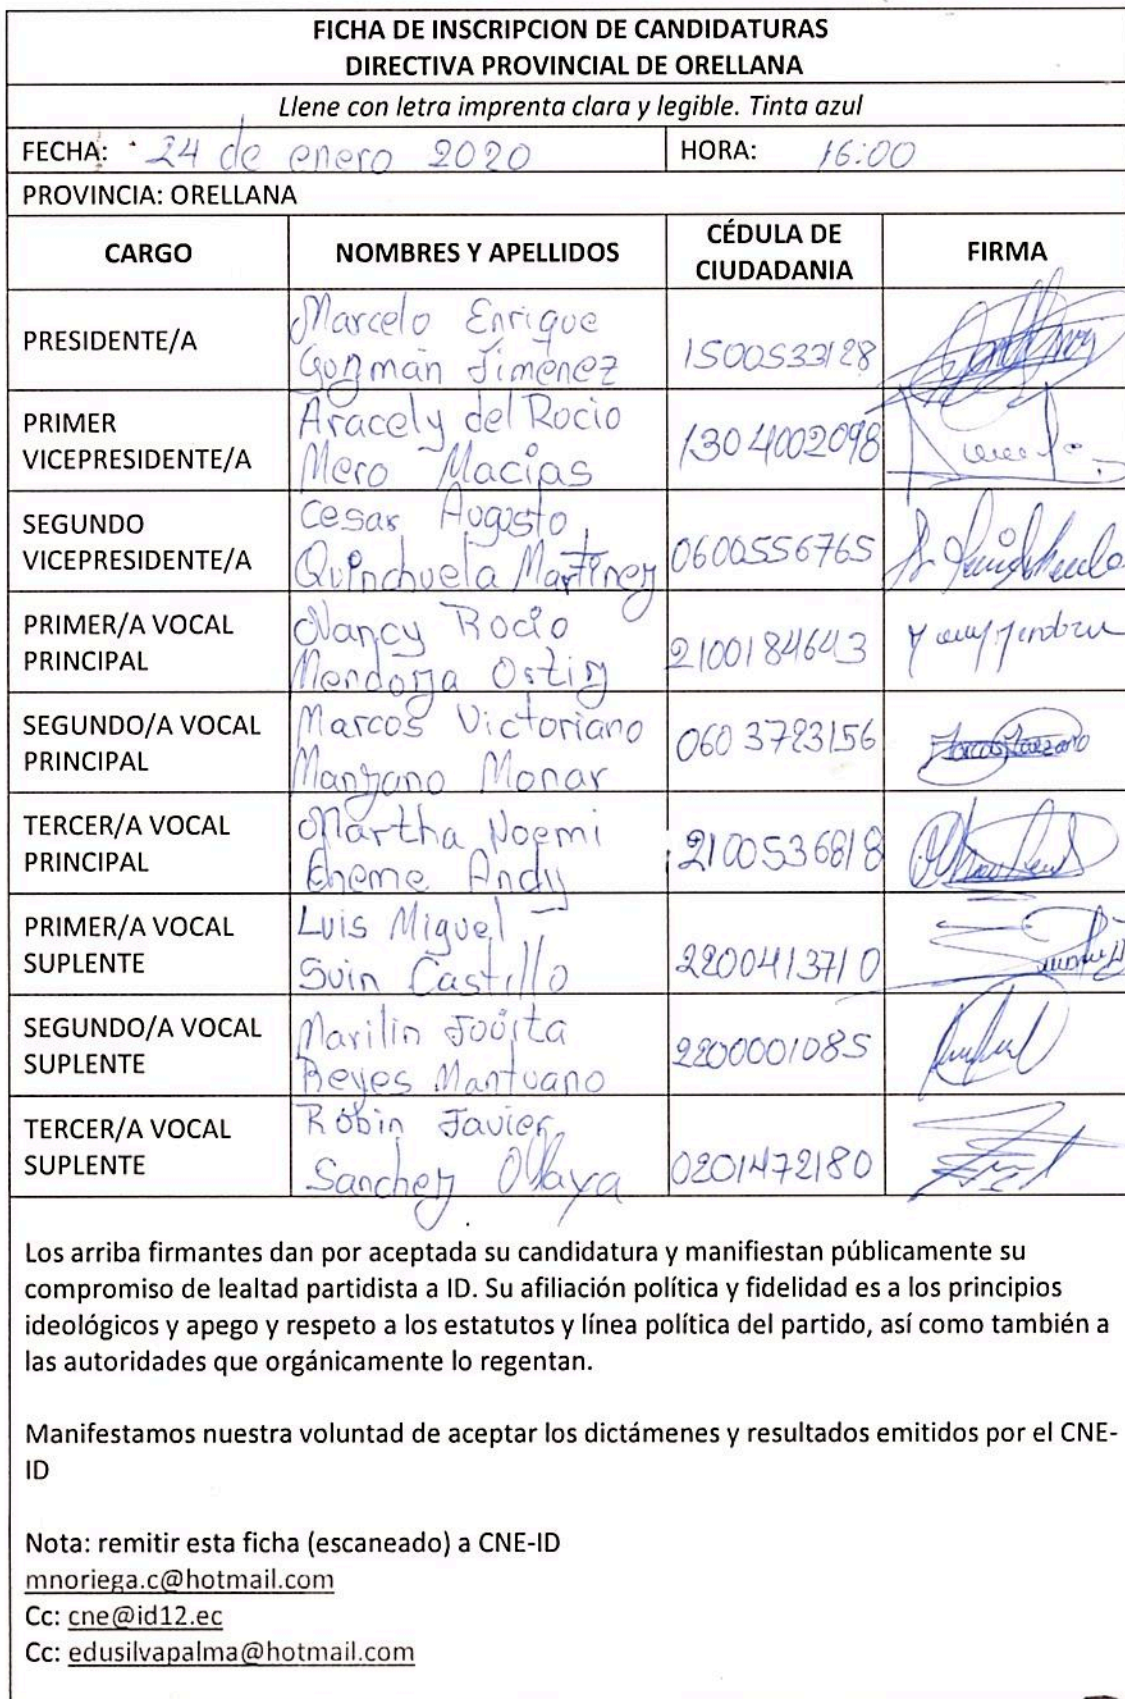 FICHA DE INSCRIPCION DE CANDIDATURAS
DIRECTIVA PROVINCIAL DE ORELLANA
Llene con letra imprenta clara y legible. Tinta azul
FECHA: 24 de enero 2020 HORA: 16:00
PROVINCIA: ORELLANA
CARGO NOMBRES Y APELLIDOS CÉDULA DE CIUDADANIA FIRMA
PRESIDENTE/A
Marcelo Enrique
Guzmán Jiménez
1500533128
PRIMER
VICEPRESIDENTE/A
Aracely del Rocio
Mero Macias
1304002098
SEGUNDO
VICEPRESIDENTE/A
Cesar Augusto
Quinchuela Martinez
0600556765
PRIMER/A VOCAL
PRINCIPAL
Nancy Rocio
Mendoza Ostiz
2100184643
SEGUNDO/A VOCAL
PRINCIPAL
Marcos Victoriano
Manzano Monar
0603723156
TERCER/A VOCAL
PRINCIPAL
Martha Noemi
Cheme Andy
2100536818
PRIMER/A VOCAL
SUPLENTE
Luis Miguel
Suin Castillo
2200413710
SEGUNDO/A VOCAL
SUPLENTE
Marilin
Reyes Mantuano
2200001085
TERCER/A VOCAL
SUPLENTE
Robin Javier
Sanchez Olaya
0201472180
Los arriba firmantes dan por aceptada su candidatura y manifiestan públicamente su
compromiso de lealtad partidista a ID. Su afiliación política y fidelidad es a los principios
ideológicos y apego y respeto a los estatutos y línea política del partido, así como también a
las autoridades que orgánicamente lo regentan.
Manifestamos nuestra voluntad de aceptar los dictámenes y resultados emitidos por el CNE-
ID
Nota: remitir esta ficha (escaneado) a CNE-ID
mnoriega.c@hotmail.com
Cc: cne@id12.ec
Cc: edusilvapalma@hotmail.com